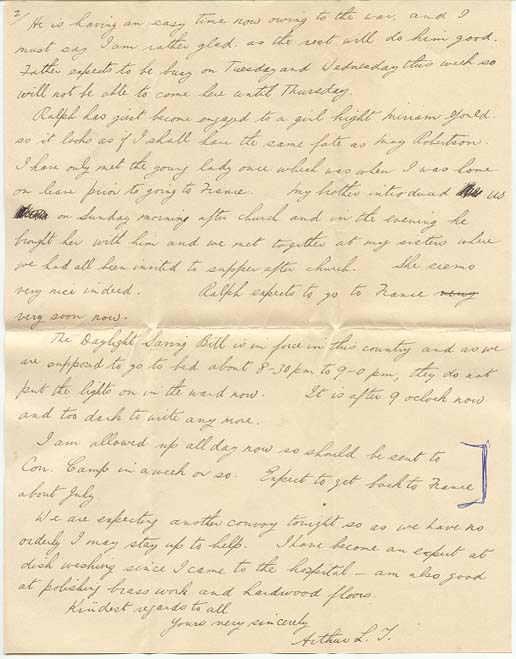 2/ He is having an easy time now owing to the war, and I
must say I am rather glad. as the rest will do him good.
Father expects to be busy on Tuesday and Wednesday this week so
will not be able to come here until Thursday.
Ralph has just become engaged to a girl hight Miriam Gould.
so it looks as if I shall have the same fate as May Robertson.
I have only met the young lady once which was when I was home
on leave prior to going to France. My brother introduced us
on Sunday morning after church and in the evening he
brought her with him and we met together at my sisters where
we had all been invited to supper after church. She seems
very nice indeed. Ralph expects to go to France very
very soon now.
The Daylight Saving Bill is in force in this country and as we
are supposed to go to bed about 8-30 pm to 9-0 pm, they do not
put the lights on in the ward now. It is after 9 oclock now
and too dark to write any more.
I am allowed up all day now so should be sent to
Con. Camp in a week or so. Expect to get back to France
about July.
We are expecting another convoy tonight so as we have no
orderly I may stay up to help. I have become an expert at
dish washing since I came to the hospital – am also good
at polishing brass work and hardwood floors.
Kindest regards to all
Yours very sincerely
Arthur L. T.